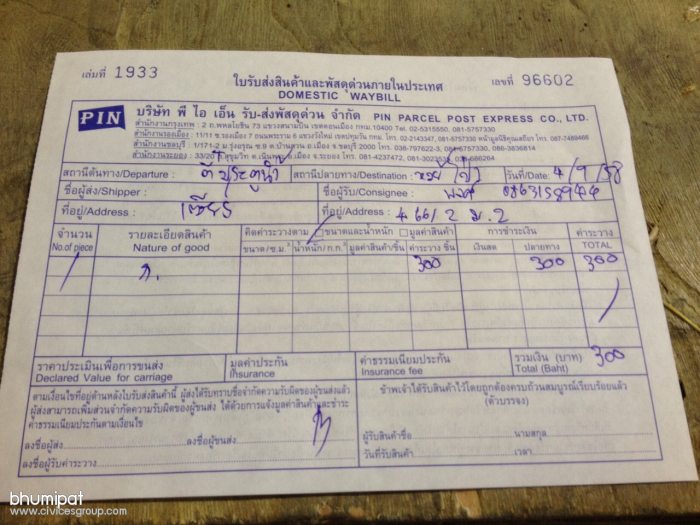 เล่มที่ 1933
ใบรับส่งสินค้าและพัสดุด่วนภายในประเทศ
DOMESTIC WAYBILL
เลขที่ 96602
PIN
บริษัท พี ไอ เอ็น รับ-ส่งพัสดุด่วน จำกัด PIN PARCEL POST EXPRESS CO., LTD.
สำนักงานกรุงเทพ : 2 ถ.พหลโยธิน 73 แขวงสนามบิน เขตดอนเมือง กทม.10400 โทร. 02-5315550, 081-5757330
สำนักงานรองเมือง : 11/11 ซ.รองเมือง 5 แขวงรองเมือง เขตปทุมวัน กทม. โทร. 02-2143347, 081-5757330
สำนักงานชลบุรี : 1/171-2 ม.รุ่งอรุณ
สำนักงานระยอง : 33/20 ถ.สุขุมวิท จ.ระยอง โทร. 081-4237472,
สถานีต้นทาง/Departure : สถานีปลายทาง/Destination : วันที่/Date: 4/9/58
ชื่อผู้ส่ง/Shipper : ชื่อผู้รับ/Consignee :
ที่อยู่/Address : ที่อยู่/Address : 466/2 ม.2
จำนวน รายละเอียดสินค้า คิดค่าระวางตาม ขนาดและน้ำหนัก มูลค่าสินค้า การชำระเงิน ค่าระวาง
No.of piece Nature of good ขนาด/ซ.ม.³ น้ำหนัก/ก.ก. มูลค่าสินค้า/ชิ้น ค่าระวาง ชิ้น เงินสด ปลายทาง TOTAL
1 300 300 300
ราคาประเมินเพื่อการขนส่ง มูลค่าประกัน ค่าธรรมเนียมประกัน รวมเงิน (บาท) 300
Declared Value for carriage Insurance Insurance fee Total (Baht)
ตามเงื่อนไขที่อยู่ด้านหลังใบรับส่งสินค้านี้ ผู้ส่งได้รับทราบข้อจำกัดความรับผิดของผู้ขนส่งแล้ว
ผู้ส่งสามารถเพิ่มส่วนจำกัดความรับผิดของผู้ขนส่ง ได้ด้วยการแจ้งมูลค่าสินค้าและชำระ
ค่าธรรมเนียมประกันตามเงื่อนไข
ข้าพเจ้าได้รับสินค้าไว้โดยถูกต้องครบถ้วนสมบูรณ์เรียบร้อยแล้ว
(ตัวบรรจง)
ลงชื่อผู้ส่ง ลงชื่อผู้ขนส่ง
ลงชื่อผู้รับค่าระวาง
ผู้รับสินค้าชื่อ นามสกุล
วันที่รับสินค้า เวลา
bhumipat
www.civicesgroup.com